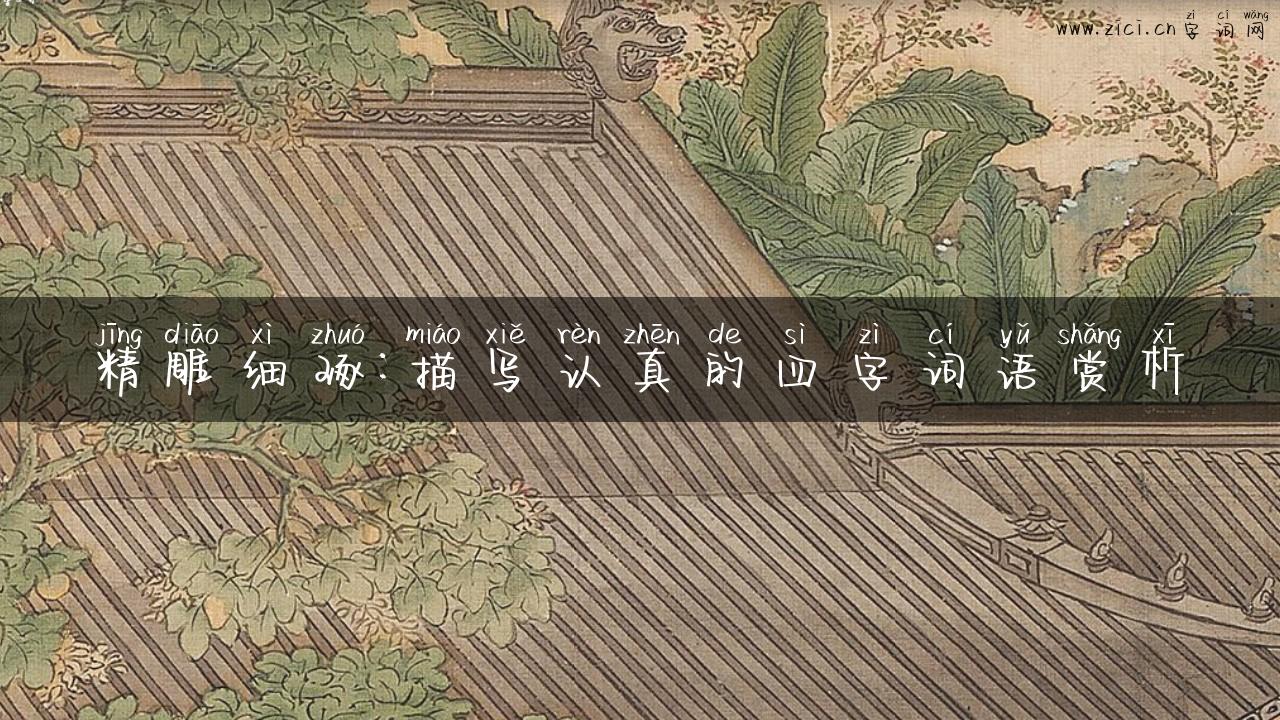 zì cí wǎng
www.zici.cn 字词网
jīng diāo xì zhuó miáo xiě rèn zhēn de sì zì cí yǔ shǎng xī
精雕细琢:描写认真的四字词语赏析